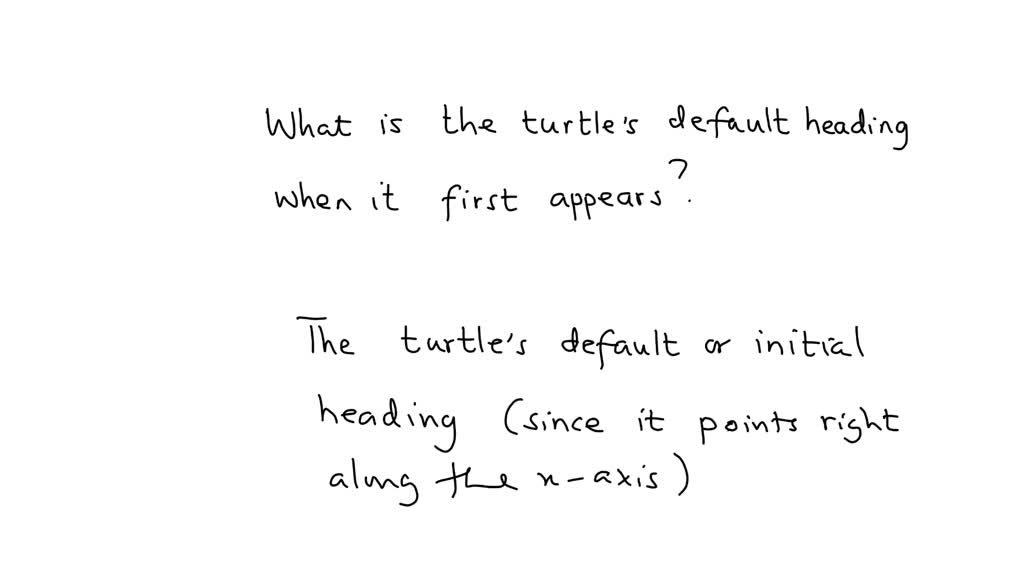 What is the turtle's default heading
when it first appears?
The turtle's default or initial
heading (since it points right
along the x-axis)